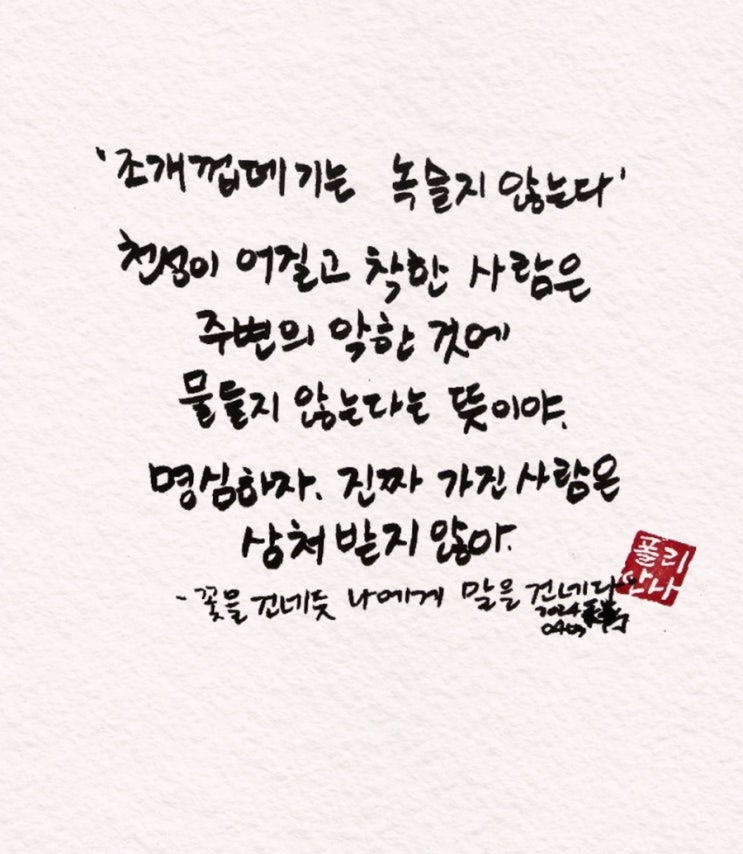 '조개껍데기는 녹슬지 않는다'
천성이 어질고 착한 사람은
주변의 악한 것에
물들지 않는다는 뜻이야.
명심하자. 진짜 가진 사람은
상처 받지 않아.
- 꽃을 건네듯 나에게 말을 건네다
2024
0403
폴리
안나